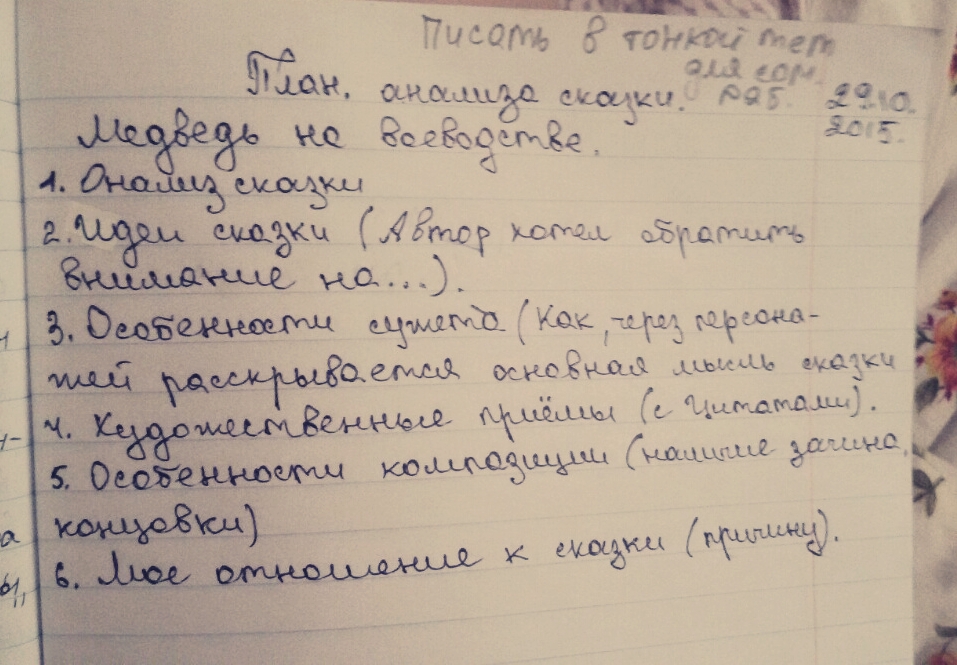 Писать в тонкой тет
для сам.
План. анализа сказки. раб. 29.10.
Медведь на воеводстве. 2015.
1. Онализ сказки
2. Идеи сказки (Автор хотел обратить
внимание на...).
3. Особенности сюжета (Как, через персона-
жей расскрывается основная мысль сказки
4. Художественные приёмы (с Цитатами).
5. Особенности композиции (наличие зачина,
концовки)
6. Мое отношение к сказки (причину).